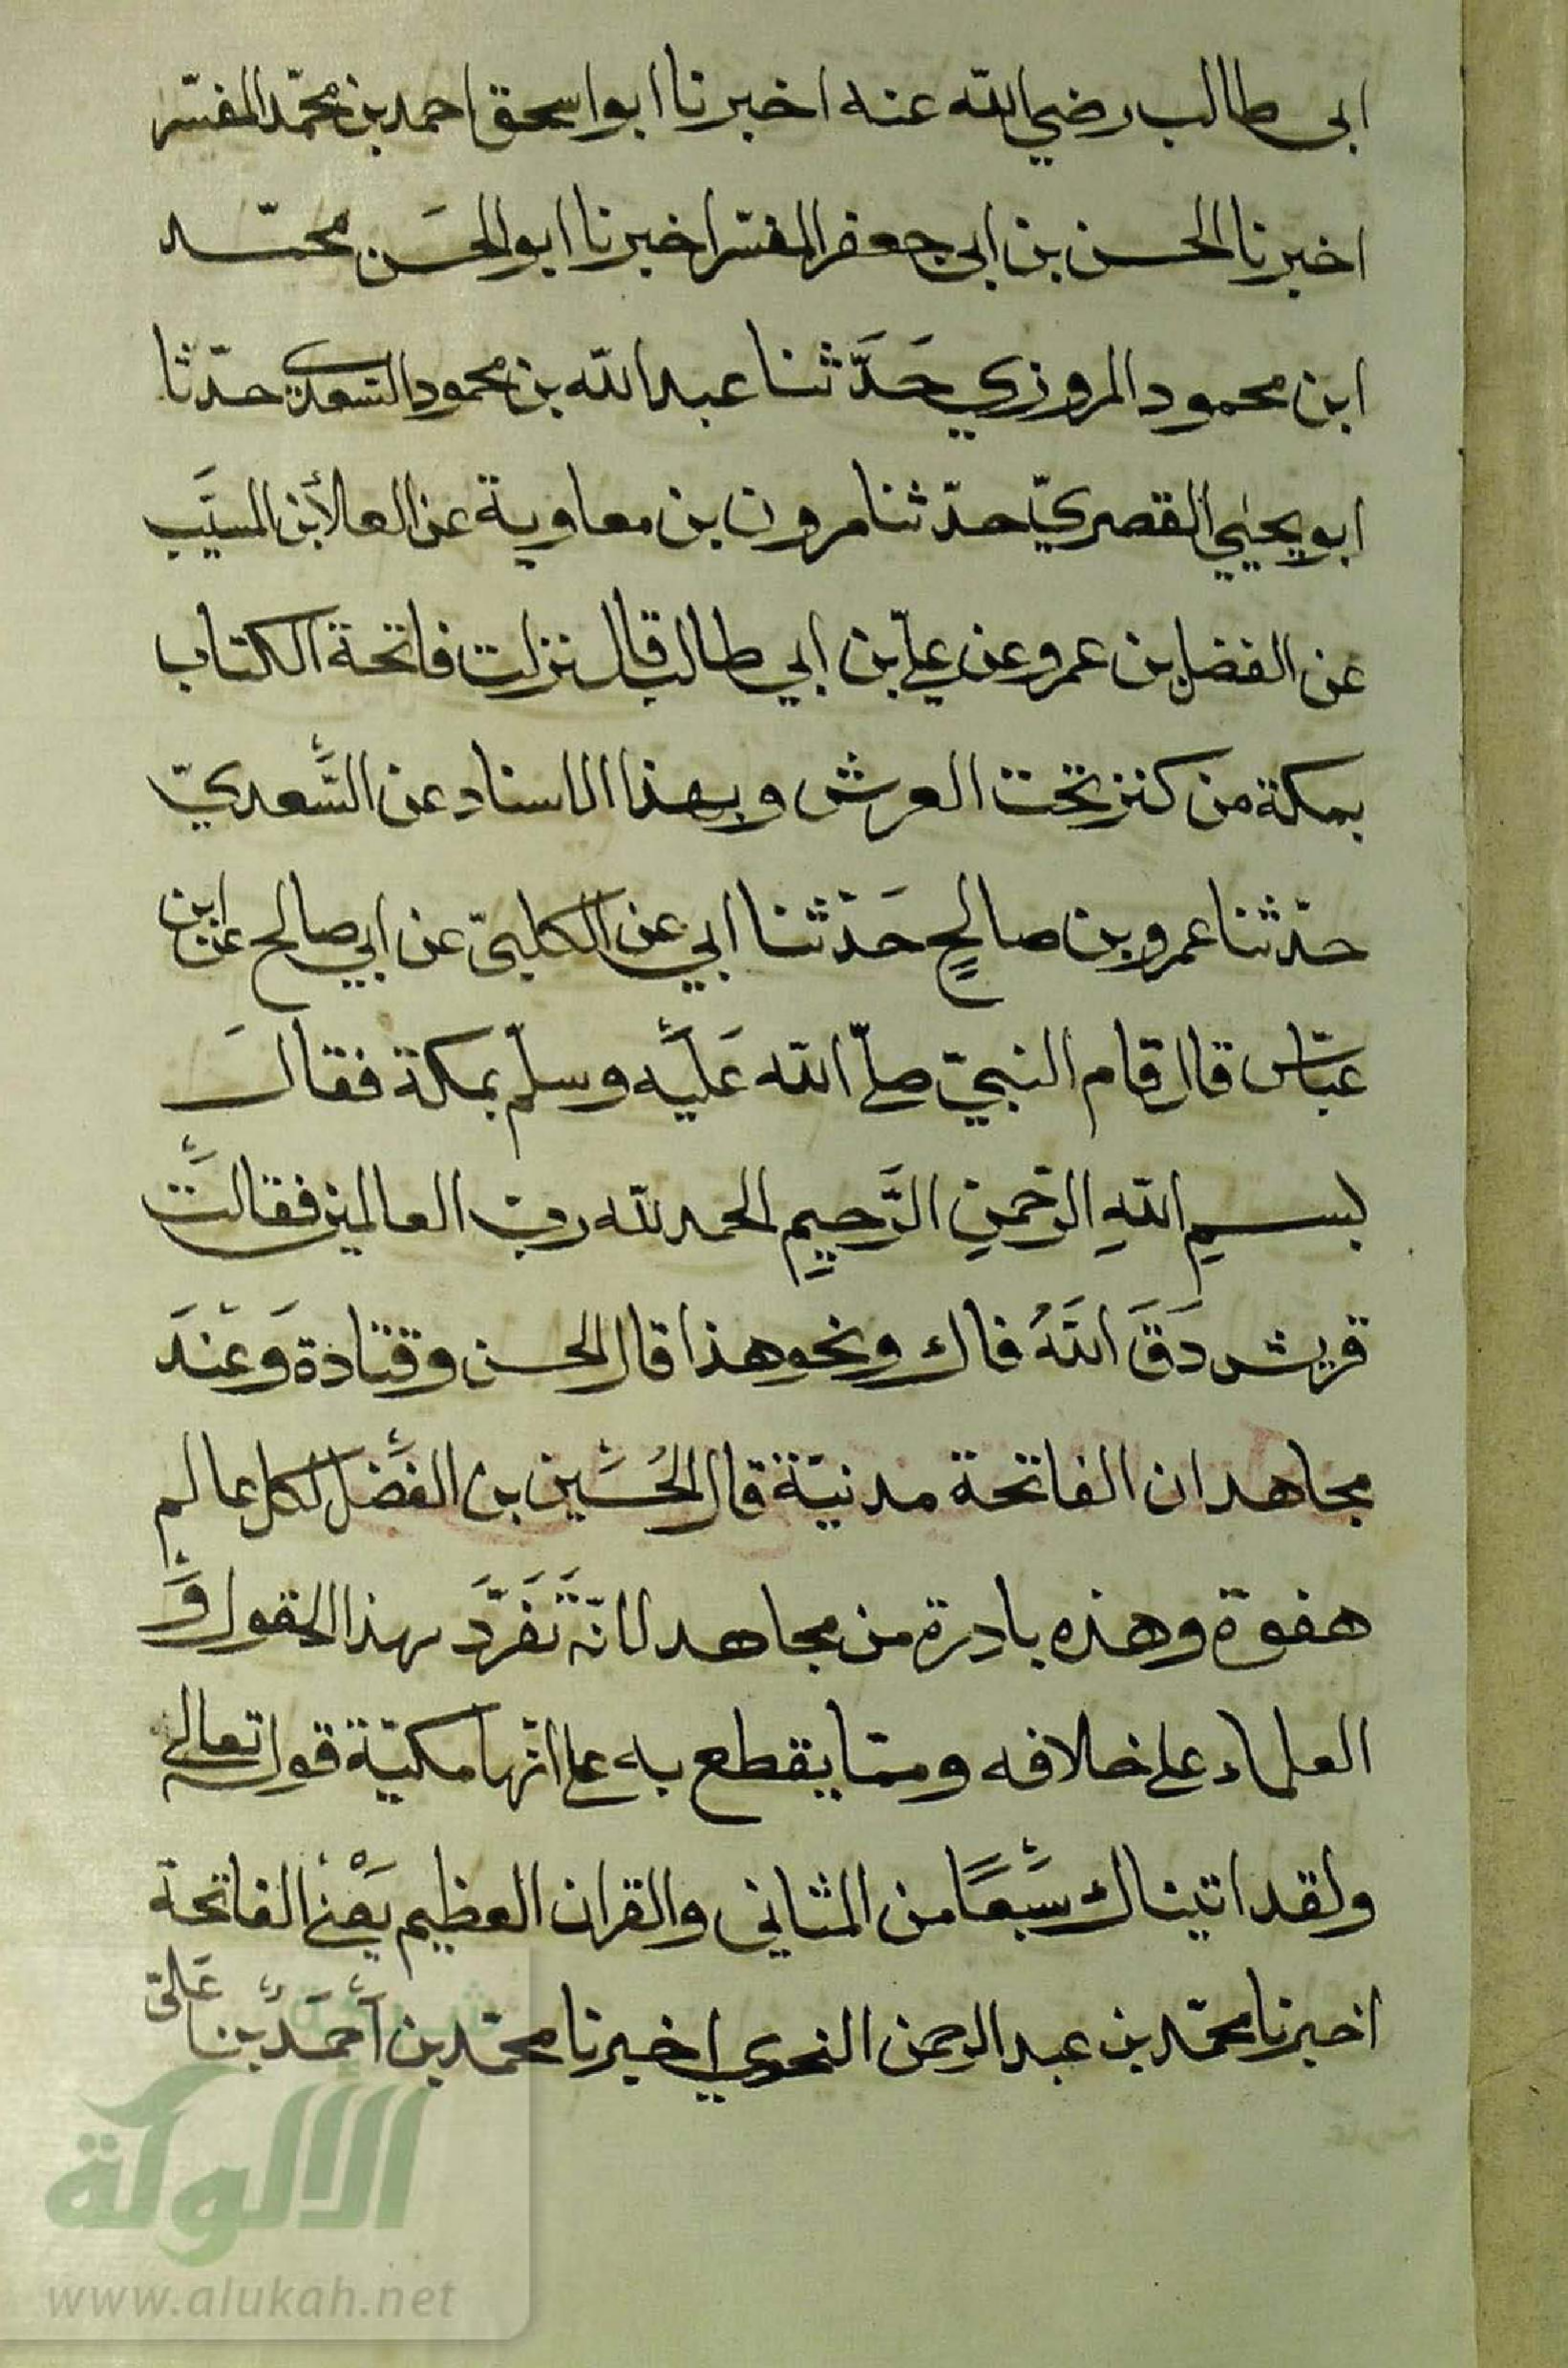 ابى طالب رضي الله عنه اخبرنا ابو اسحق احمد بن محمّد المفسّر
اخبرنا الحسن بن ابى جعفر المفسّر اخبرنا ابو الحسَن محمّد
ابن محمود المروزي حَدَّثنا عبد الله بن محمود السّعدى حدّثنا
ابو يحيٰي القصريّ حدّثنا مرون بن معاوية عن العلاء بن المسيَّب
عن الفضل بن عمرو عن عليّ بن ابي طالب قال نزلت فاتحة الكتاب
بمكة من كنز تحت العرش وبهذا الاسناد عن السَّعديّ
حدّثنا عمرو بن صالحٍ حَدّثنا ابي عن الكلبيّ عن ابي صالح عن ابن
عبّاس قال قام النبيّ صلّى الله عَلَيه وسلّم بمكة فقالَ
بسمِ اللهِ الرّحمنِ الرَّحيمِ الحمد لله رب العالمين فقالت
قريش دَقَ اللهُ فاك ونحو هذا قال الحسن وقتادة وَعَندَ
مجاهد ان الفاتحة مدنيّة قال الحُسَين بن الفَضل لكل عالم
هفوة وهذه بادرة من مجاهد لانّه تَفَرَّدَ بهذا القول وَ
العلماء على خلافه وممّا يقطع به على انّها مكيّة قوله تعالى
ولقد اتيناك سَبعًا من المثاني والقران العظيم يَعْني الفاتحة
اخبرنا محمّد بن عبد الرحمن النحوي اخبرنا محمّد بن اَحمَد بن عَليّ
شبكة
الألوكة
www.alukah.net